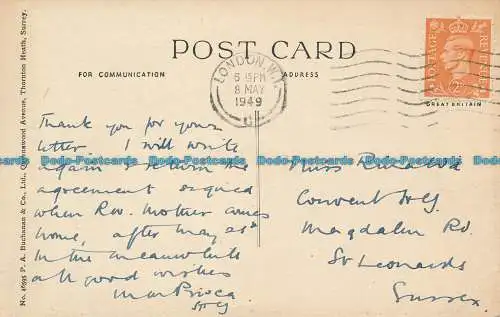 No. 46935 P. A. Buchanan & Co., Ltd., Queenswood Avenue, Thornton Heath, Surrey.
POST CARD
FOR COMMUNICATION
ADDRESS
LONDON. W.1.
6 15 PM
8 MAY
1949
POSTAGE
REVENUE
GREAT BRITAIN
Thank you for your
letter. I will write
again & return the
agreement signed
when Rev. Mother comes
home, after may 21st
In the meanwhile
all good wishes
Miss
Convent
Magdalen Rd.
St Leonards
Sussex.
Dodo-Postcards Dodo-Postcards Dodo-Postcards Dodo-Postcards Dodo-Postcards